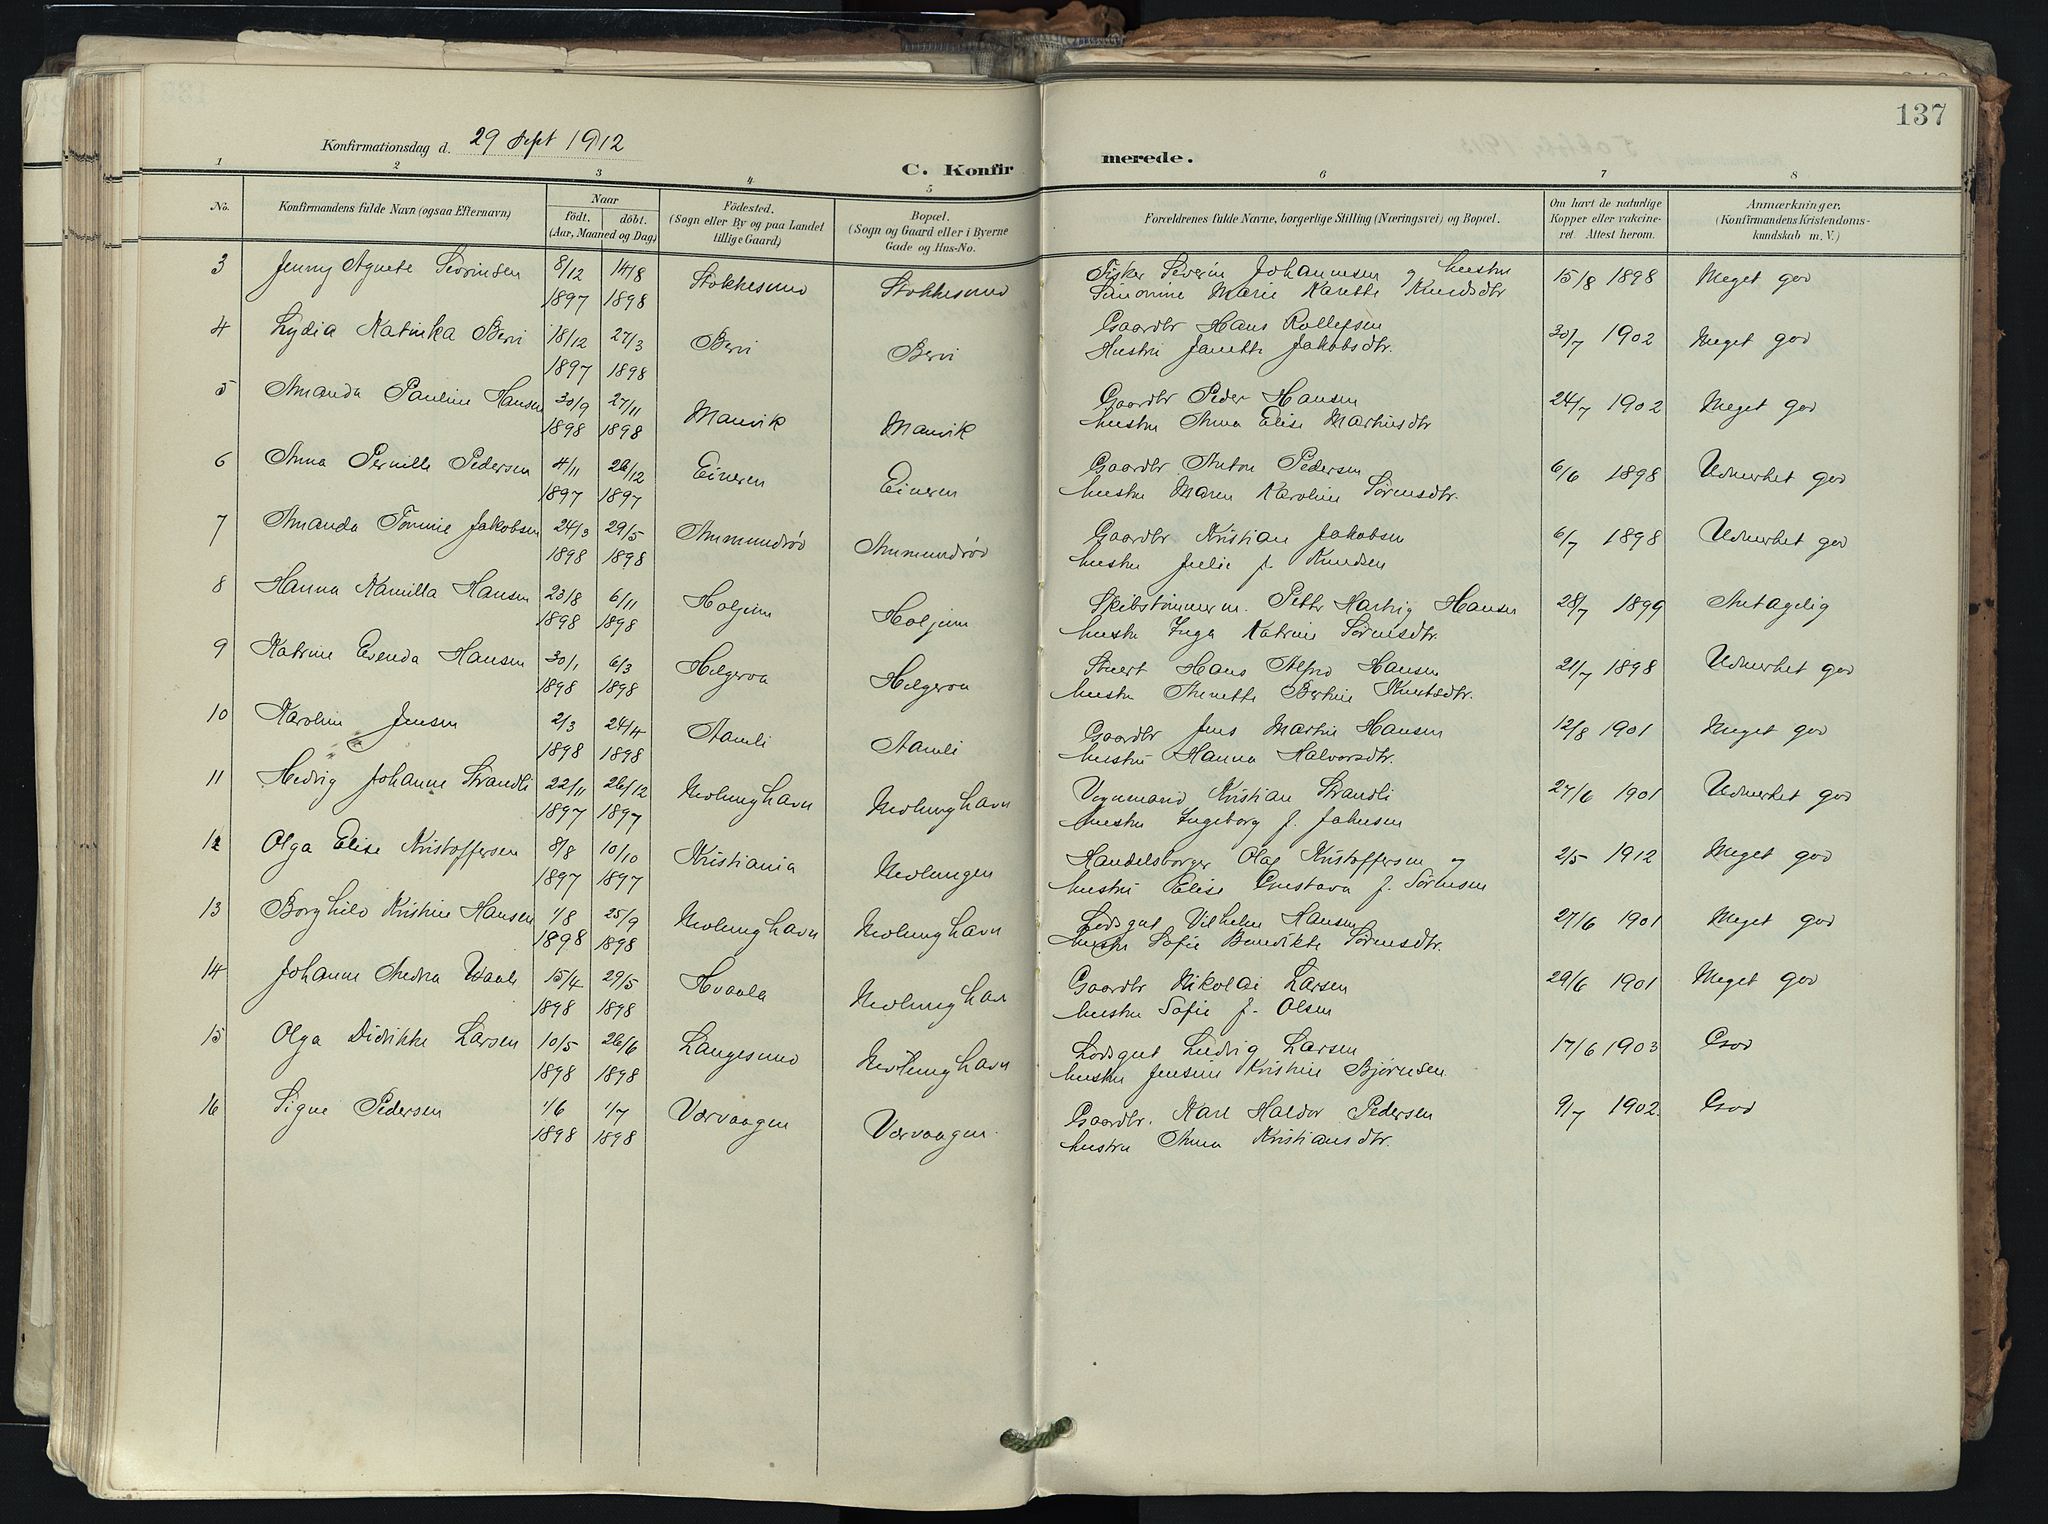 137
Konfirmationsdag d. 29 Sept 1912
C. Konfirmerede.
1 2 3 4 5 6 7 8
No. Konfirmandens fulde Navn (ogsaa Efternavn) Naar födt. döbt. (Aar, Maaned og Dag) Födested. (Sogn eller By og paa Landet tillige Gaard) Bopæl. (Sogn og Gaard eller i Byerne Gade og Hus-No. Forældrenes fulde Navne, borgerlige Stilling (Næringsvei) og Bopæl. Om havt de naturlige Kopper eller vakcineret. Attest herom. Anmærkninger. (Konfirmandens Kristendomskundskab m. V.)
3 Jenny Agnete Severinsen 8/12 14/8 Stokkesund Stokkesund Fisker Severin Johannesen og hustru 15/8 1898 Meget god
1897 1898 Simonine Marie Karette Knudsdtr
4 Lydia Katinka Bervi 18/12 27/3 Bervi Bervi Gaardbr Hans Rollefsen 30/7 1902 Meget god
1897 1898 Hustru Janette Jakobsdtr.
5 Amanda Pauline Hansen 30/9 27/11 Manvik Manvik Gaardbr Peder Hansen 24/7 1902 Meget god
1898 1898 hustru Anna Elise Martinsdtr
6 Anna Pernille Pedersen 4/11 26/12 Eineren Eineren Gaardbr Anton Pedersen 6/6 1898 Udmerket god
1897 1897 hustru Maren Karoline Sørensdtr.
7 Amanda Tomine Jakobsen 24/3 29/5 Ammundrød Ammundrød Gaardbr Kristian Jakobsen 6/7 1898 Udmerket god
1898 1898 hustru Julie f. Knudsen
8 Hanna Kamilla Hansen 23/8 6/11 Holjem Holjem Skibstømmerm. Petter Hartvig Hansen 28/7 1899 Antagelig
1898 1898 hustru Inga Katrine Sørensdtr.
9 Katrine Evenda Hansen 30/1 6/3 Helgeroa Helgeroa Stuert Hans Alfred Hansen 21/7 1898 Udmerket god
1898 1898 hustru Anette Bertine Knutsdtr.
10 Karoline Jensen 2/3 24/4 Aamli Aamli Gaardbr Jens Martin Hansen 12/8 1901 Meget god
1898 1898 hustru Hanna Halvorsdtr.
11 Hedvig Johanne Strandli 22/11 26/12 Nevlunghavn Nevlunghavn Vognmand Kristian Strandli 27/6 1901 Udmerket god
1897 1897 hustru Ingeborg f. Johnsen
12 Olga Elise Kristoffersen 8/8 10/10 Kristiania Nevlungen Handelsborger Olaf Kristoffersen og 2/5 1912 Meget god
1897 1897 hustru Elise Gustava f. Sørensen
13 Borghild Kristine Hansen 1/8 25/9 Nevlunghavn Nevlunghavn Lodsgut Vilhelm Hansen 27/6 1901 Meget god
1898 1898 hustru Sofie Benedikte Sørensdtr.
14 Johanne Andrea Waale 15/4 29/5 Hvaala Nevlunghavn Gaardbr Nikolai Larsen 29/6 1901 Meget god
1898 1898 hustru Sofie f. Olsen
15 Olga Didrikke Larsen 10/5 26/6 Langesund Nevlunghavn Lodsgut Ludvig Larsen 17/6 1903 God
1898 1898 hustru Jensine Kristine Bjørnsen
16 Signe Pedersen 1/6 1/7 Værvaagen Værvaagen. Gaardbr. Karl Haldor Pedersen 9/7 1902. God
1898 1898 hustru Anna Kristiansdtr.